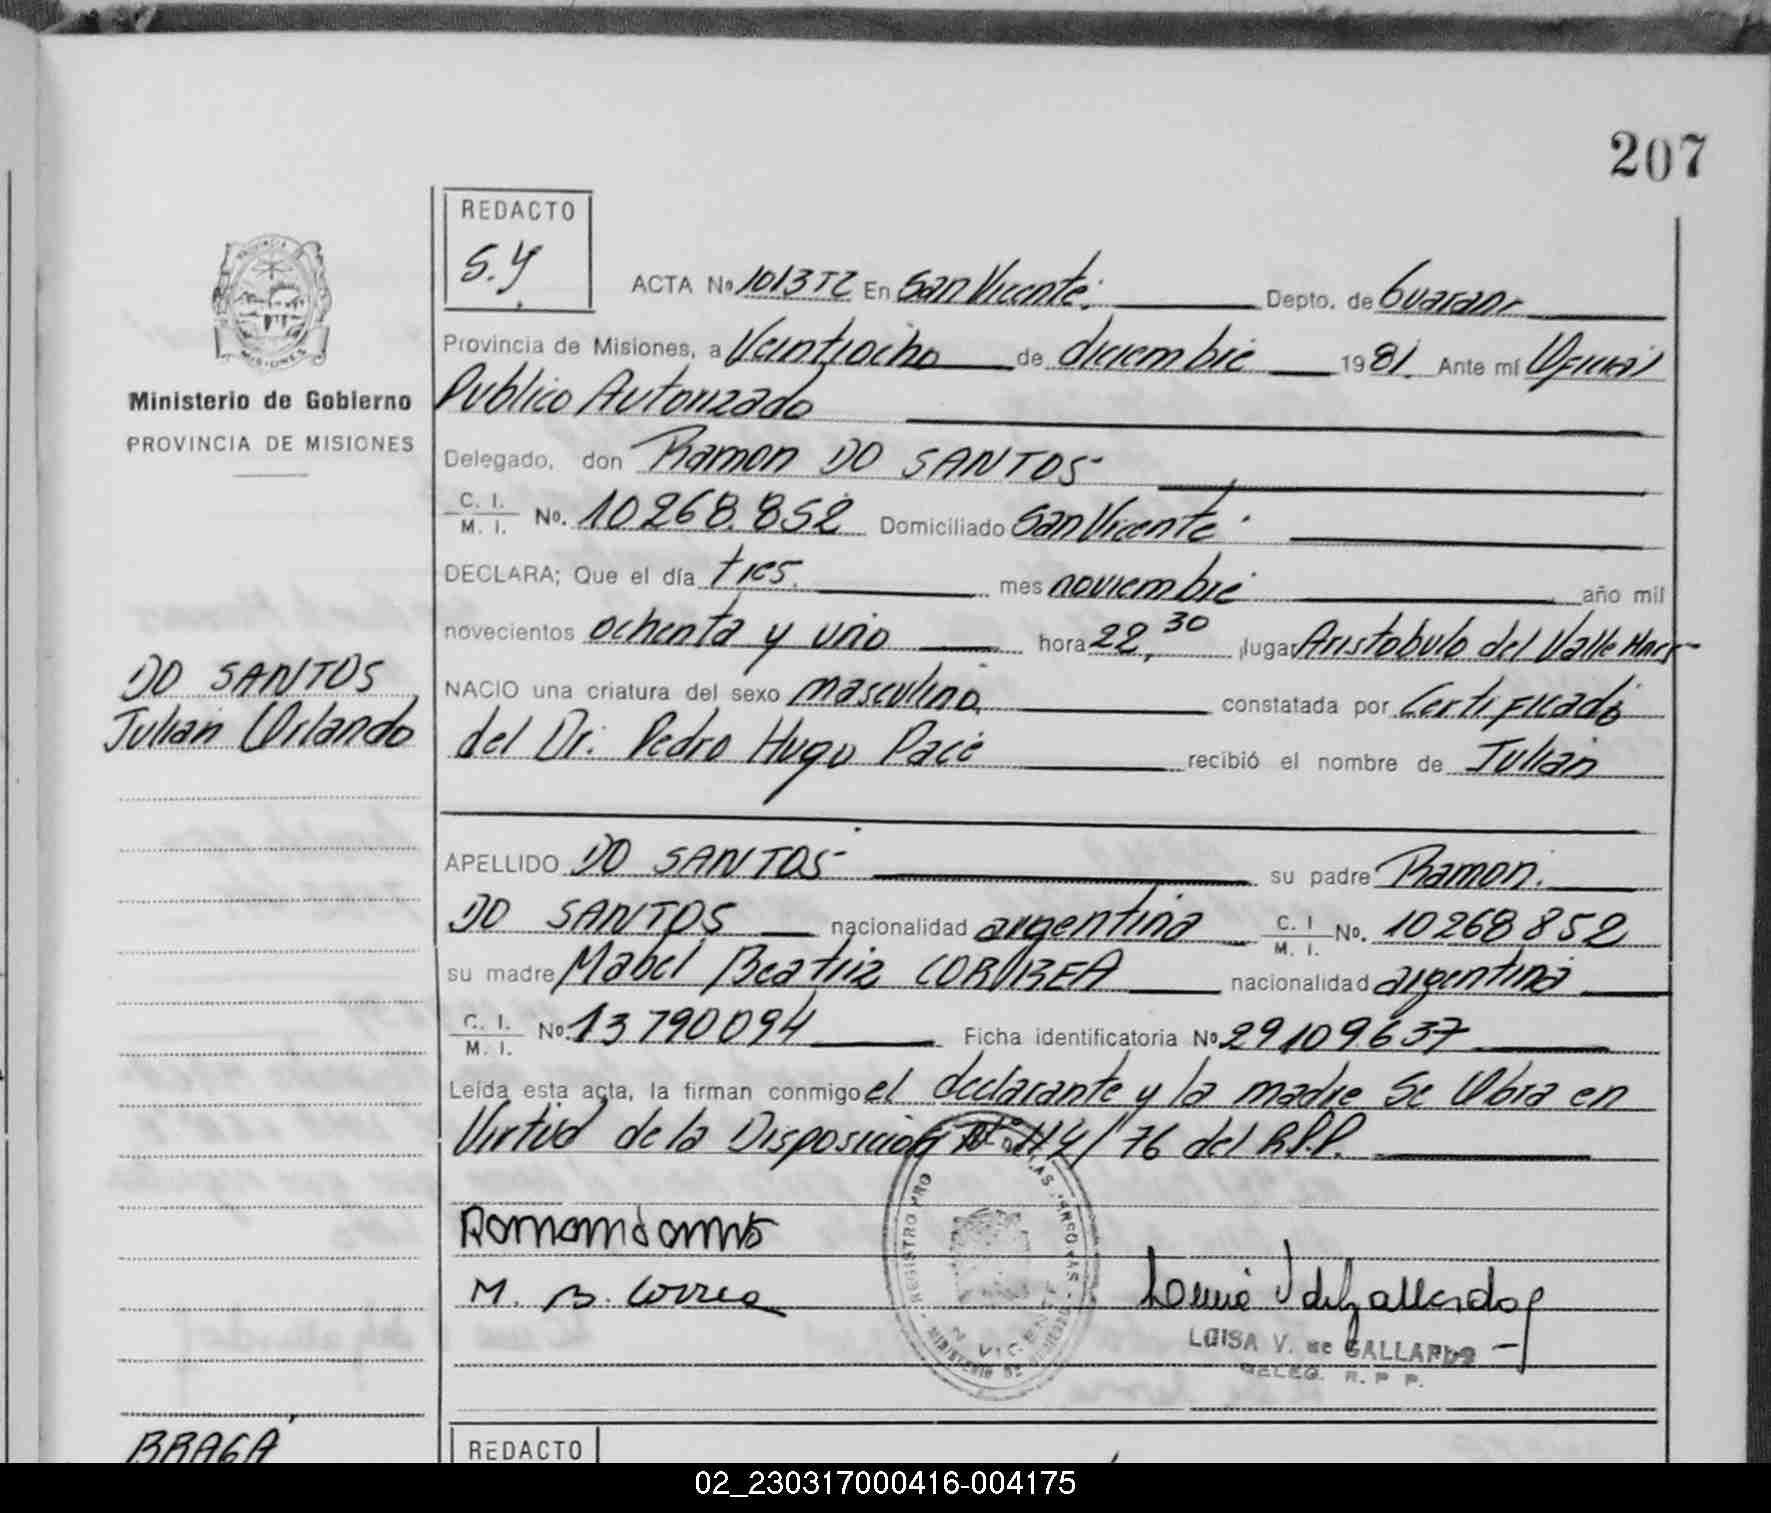 207
REDACTO
S.Y
ACTA No 1013 TZ En San Vicente. Depto. de Guarani
Provincia de Misiones, a Veintiocho de diciembre 1981 Ante mí Oficial
Publico Autorizado
Delegado, don Ramon DO SANTOS
C. I.
M. I. No. 10268.852 Domiciliado San Vicente
DECLARA; Que el día tres. mes noviembre año mil
novecientos ochenta y uno hora 22,30 lugar Aristobulo del Valle
NACIO una criatura del sexo masculino, constatada por Certificado
del Dr. Pedro Hugo Pace recibió el nombre de Julian
APELLIDO DO SANTOS su padre Ramon.
DO SANTOS nacionalidad argentina C. I
M. I. No. 10268852
su madre Mabel Beatriz CORREA nacionalidad argentina
C. I.
M. I. No. 13790094 Ficha identificatoria No 29109637
Leída esta acta, la firman conmigo el declarante y la madre Se Obra en
Virtud de la Disposición Nº 114/76 del R.P.P.
M. B. Correa
LUISA V. de GALLARDO
DELEG. R. P P.
PROVINCIA
MISIONES
Ministerio de Gobierno
PROVINCIA DE MISIONES
DO SANTOS
Julian Orlando
BRAGA
REDACTO
02_230317000416-004175